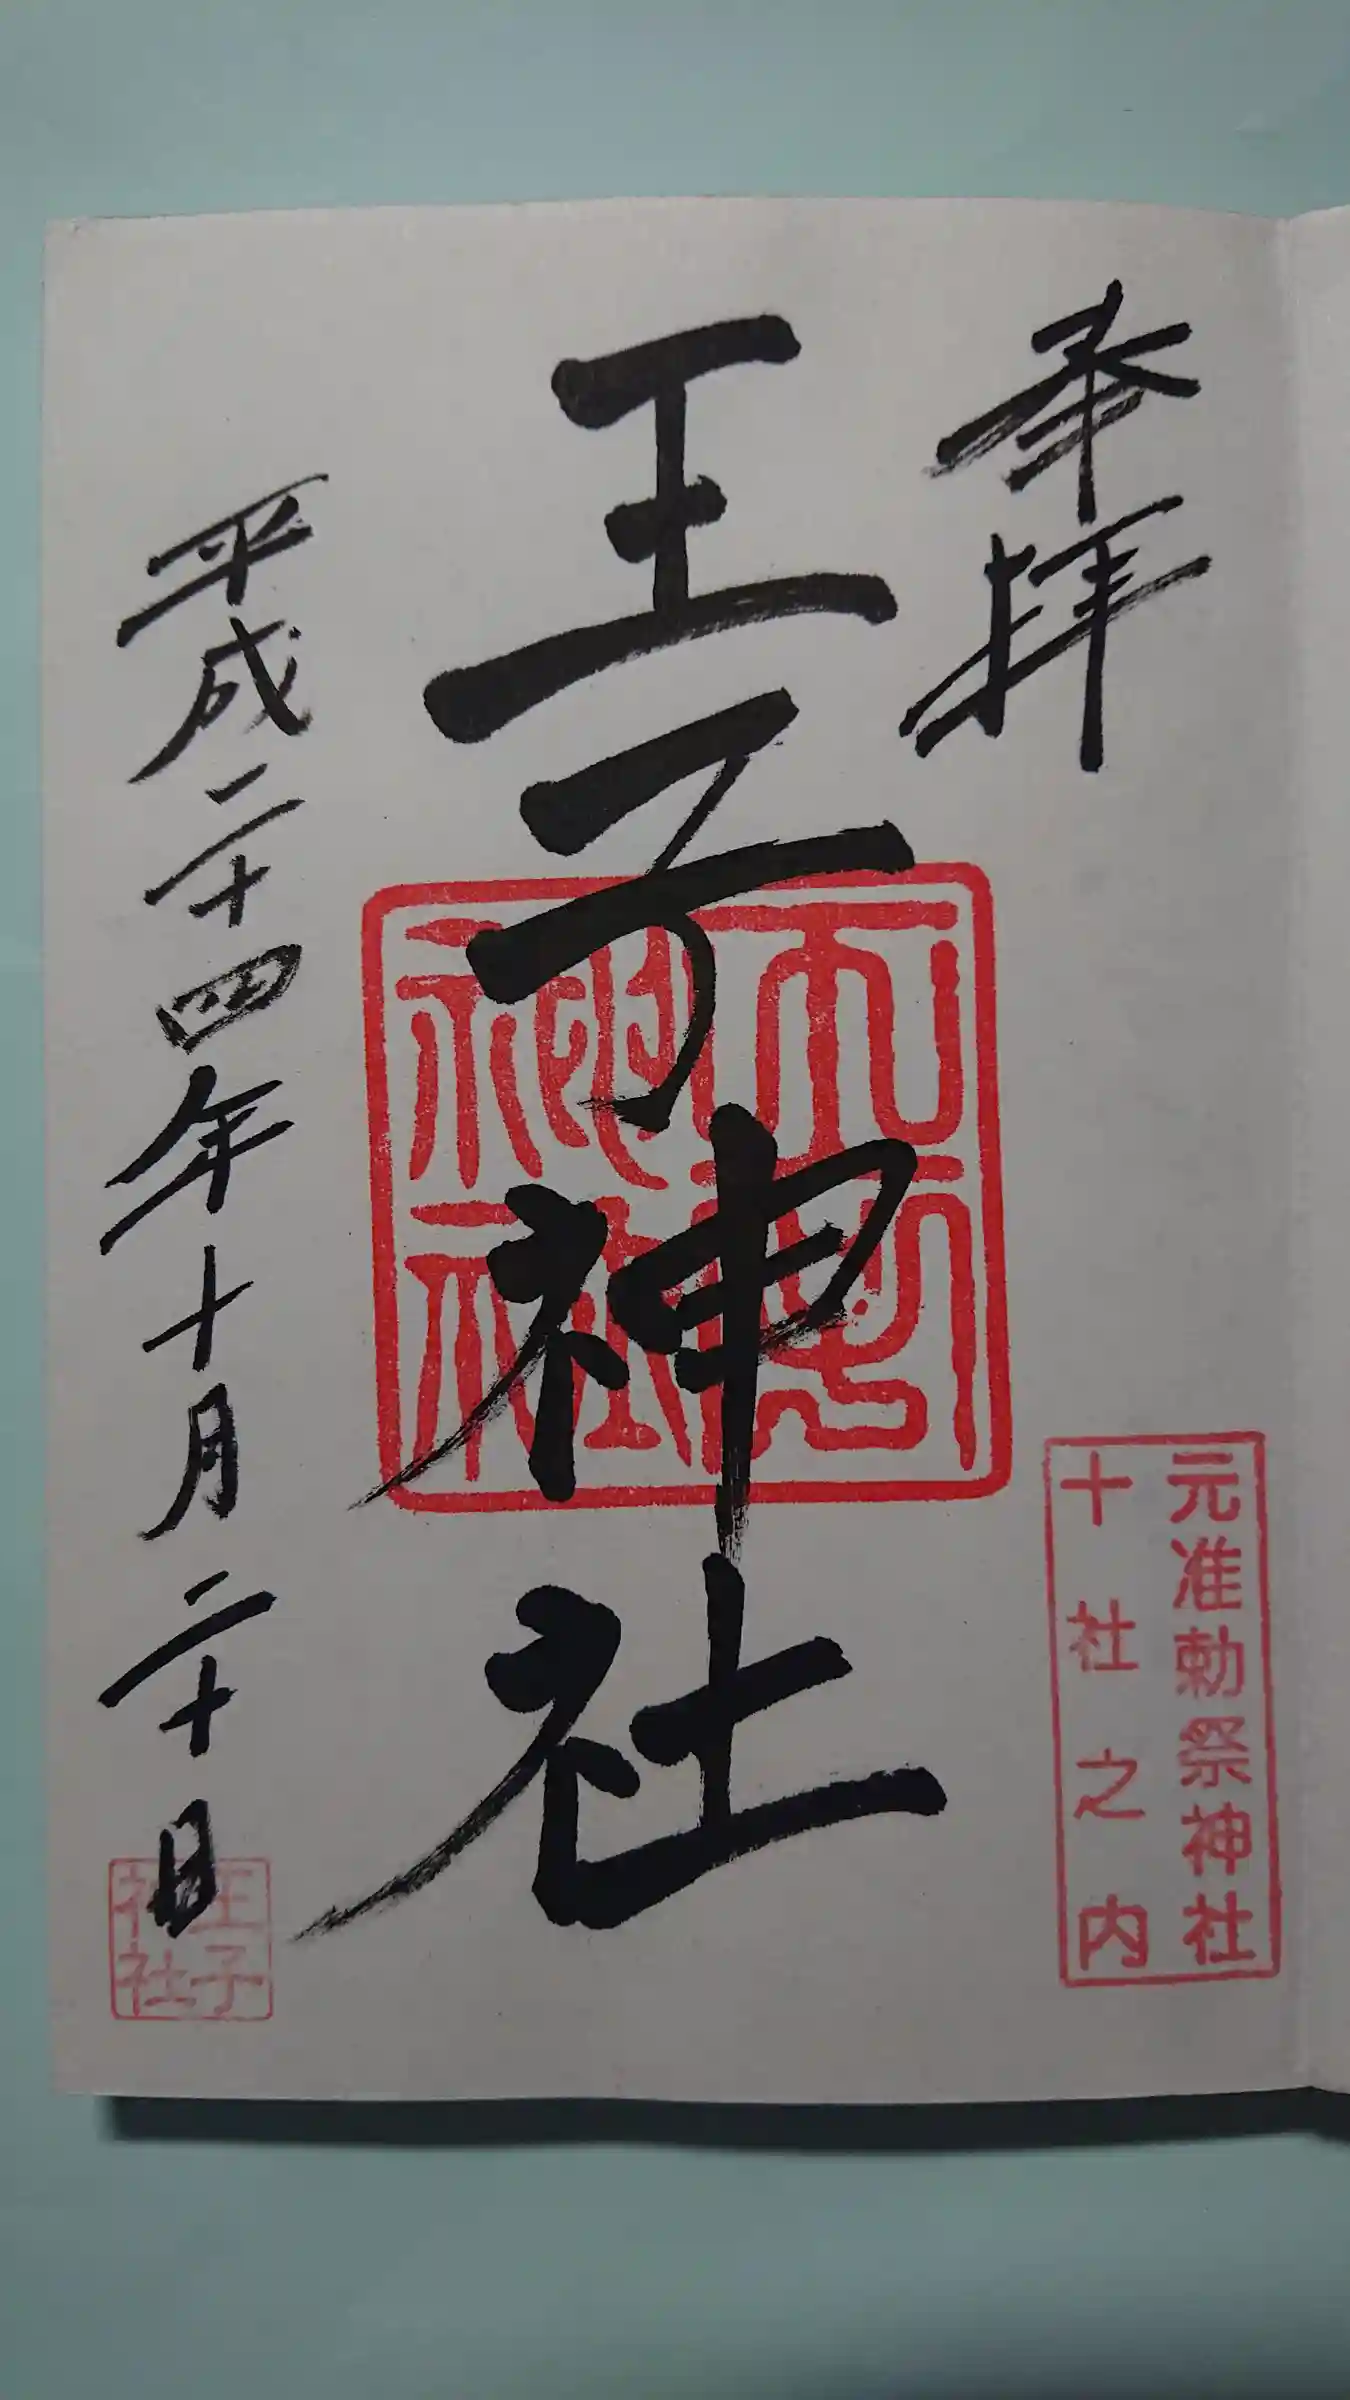 奉拝
元准勅祭神社
十社之内
王子神社
王子神社
平成二十四年十月二十日
王子
神社